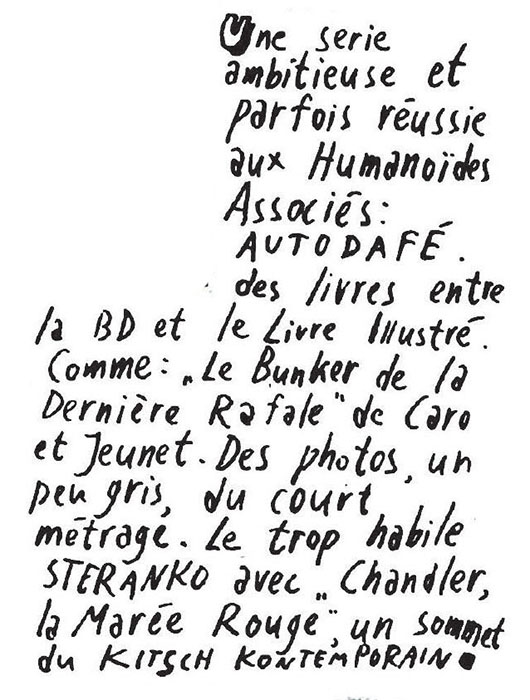 Une serie
ambitieuse et
parfois réussie
aux Humanoïdes
Associés:
AUTODAFÉ.
des livres entre
la BD et le Livre Illustré.
Comme: „Le Bunker de la
Dernière Rafale" de Caro
et Jeunet. Des photos, un
peu gris, du court
métrage. Le trop habile
STERANKO avec „Chandler,
la Marée Rouge", un sommet
du KITSCH KONTEMPORAIN